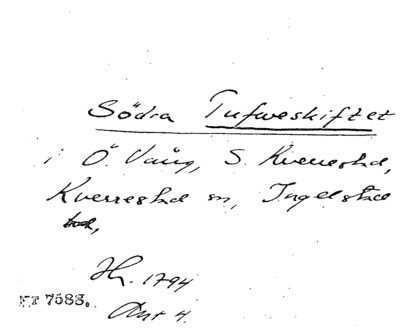 Södra Tufweskiftet
i Ö. Vång, S. Kverrestad,
Kverrestad sn, Ingelstad
hd,
Hr. 1794
KT 7583. Akt 4.